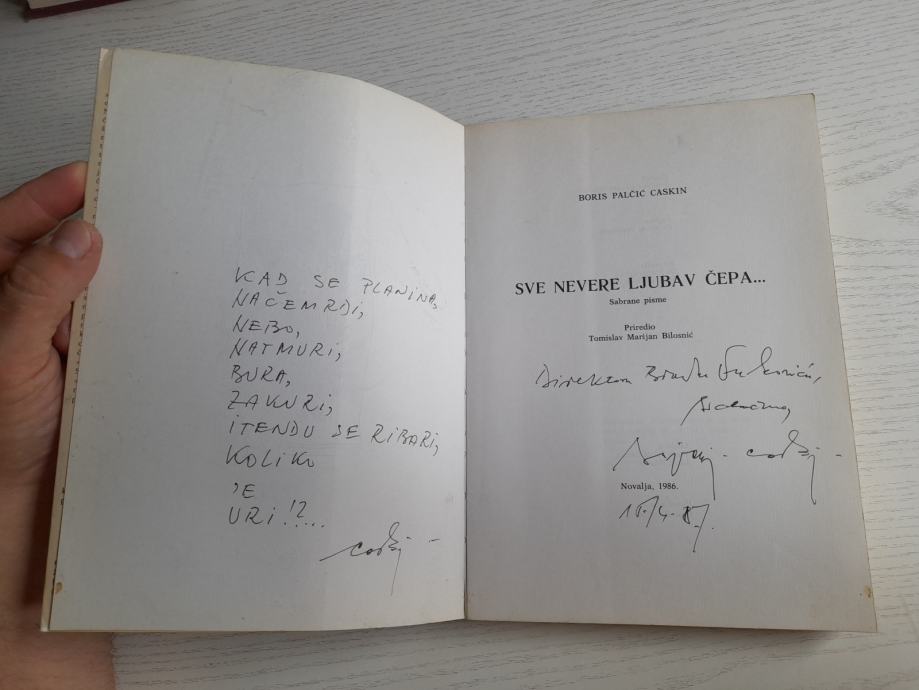 KAD SE PLANINA,
NAČEMRDI,
NEBO,
NATMURI,
BURA,
ZAKURI,
ITENDU SE RIBARI,
KOLIKO
JE
URI!?...
BORIS PALČIĆ CASKIN
SVE NEVERE LJUBAV ČEPA...
Sabrane pisme
Priredio
Tomislav Marijan Bilosnić
Direktoru
Novalja, 1986.